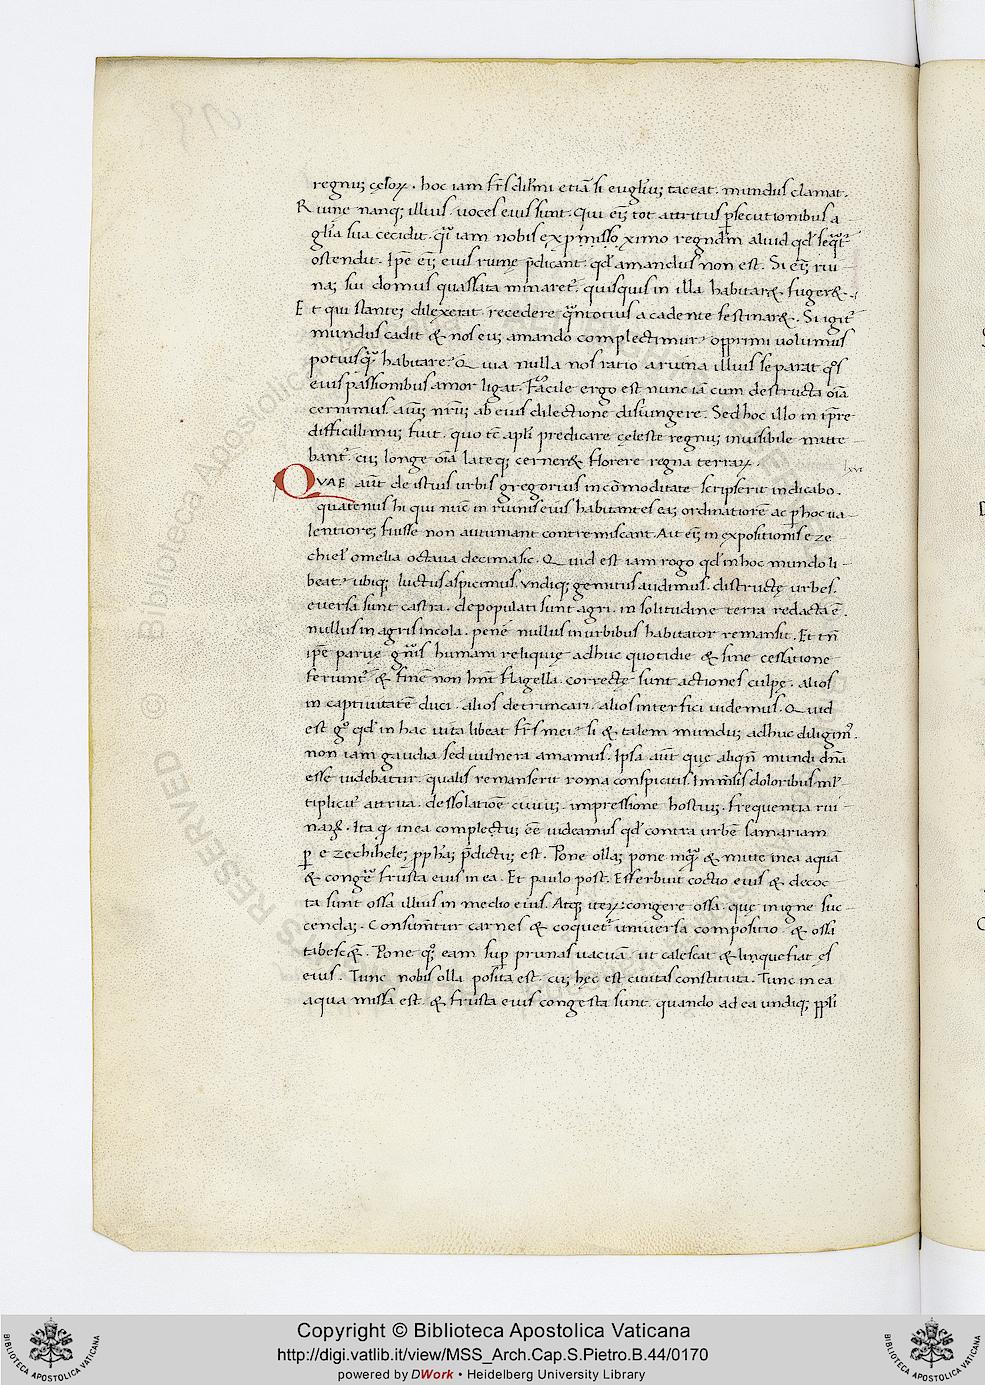 regnuȝ cęloꝝ. hoc iam fr̃s dil̃mi etiã si eug̃liuȝ taceat. mundus clamat.
Ruinę nanqȝ illius. voces eius sunt. Qui eiȝ tot attritus ꝑsecutionibus a
gl̃ia sua cecidit. qͣi iam nobis ex ꝓximo regnũ aliud qđ seqͥtʳ
ostendit. Ipẽ eiȝ eius ruinę p̃dicant. qđ amandus non est. Si eiȝ rui-
naȝ sui domus quassata minaretʳ. quisquis in illa habitar& fuger&.
Et qui stanteȝ dilexerat. recedere qͣntotius a cadente festinar&. Si igitʳ
mundus cadit & nos euȝ amando complectimur. opprimi uolumus
potiusqͣȝ habitare. Quia nulla nos ratio a ruina illius separat qͦs
eius passionibus amor ligat. Facile ergo est nunc iã cum destructa oĩa
cernimus. aiuȝ nr̃uȝ ab eius dilectione disiungere. Sed hoc illo in tp̃re
difficillimuȝ fuit. quo tc̃ apl̃i predicare cęleste regnuȝ inuisibile mitte
bantʳ. cuȝ longe oĩa lateqȝ cerner& florere regna terraꝝ.
lxvi
QVAE aũt de istius urbis gregorius incõmoditate scripserit indicabo.
quatenus hi qui nũc in ruinis eius habitantes eaȝ ordinatiorẽ ac ꝑ hoc ua-
lentioreȝ fuisse non autumant contremiscant. Ait eiȝ in expositionis eze-
chiel omelia octaua decima sic. Quid est iam rogo qđ in hoc mundo li-
beatʳ. ubiqȝ luctus aspicimus. vndiqȝ gemitus audimus. distructę urbes.
euersa sunt castra. depopulati sunt agri. in solitudine terra redacta ẽ.
nullus in agris incola. penẽ nullus in urbibus habitator remansit. Et tñ
ipẽ paruę gñis humani reliquię adhuc quotidie & sine cessatione
feriuntʳ & finẽ non hñt flagella. correctę sunt actiones culpę. alios
in captiuitatẽ duci. alios detruncari. alios interfici uidemus. Quid
est gͦ qđ in hac uita libeat fr̃s mei. si & talem munduȝ adhuc diligimʳ.
non iam gaudia sed vulnera amamus. Ipsa aũt quę aliqñ mundi dñ̃a
esse uidebatur. qualis remanserit roma conspicitis. Imm̃sis doloribus ml̃-
tiplicitʳ attrita. dessolatiõe ciuiuȝ. impressione hostiuȝ. frequentia rui-
naꝝ. Ita qͥ in ea complectuȝ ẽe uideamus qđ contra urbẽ samariam
ꝑ ezechiheleȝ ꝓph̃aȝ p̃dictuȝ est. Pone ollaȝ pone inqͣȝ & mitte in ea aquã
& congeͥ frusta eius in ea. Et paulo post. Efferbuit coctio eius & decoc
ta sunt ossa illius in medio eius. Atqȝ iteꝝ: congere ossa. quę in igne suc-
cendaȝ. Consum̃tur carnes & coquetʳ uniuersa compositio. & ossa
tabesc&. Pone qͦȝ eam suꝑ prunas uacuã. ut calescat & linquefiat ęs
eius. Tunc nobis olla posita est. cuȝ hęc est ciuitas constituta. Tunc in ea
aqua missa est. & frusta eius congesta sunt. quando ad ea undiqȝ ppl̃i
Copyright © Biblioteca Apostolica Vaticana
http://digi.vatlib.it/view/MSS_Arch.Cap.S.Pietro.B.44/0170
powered by DWork • Heidelberg University Library